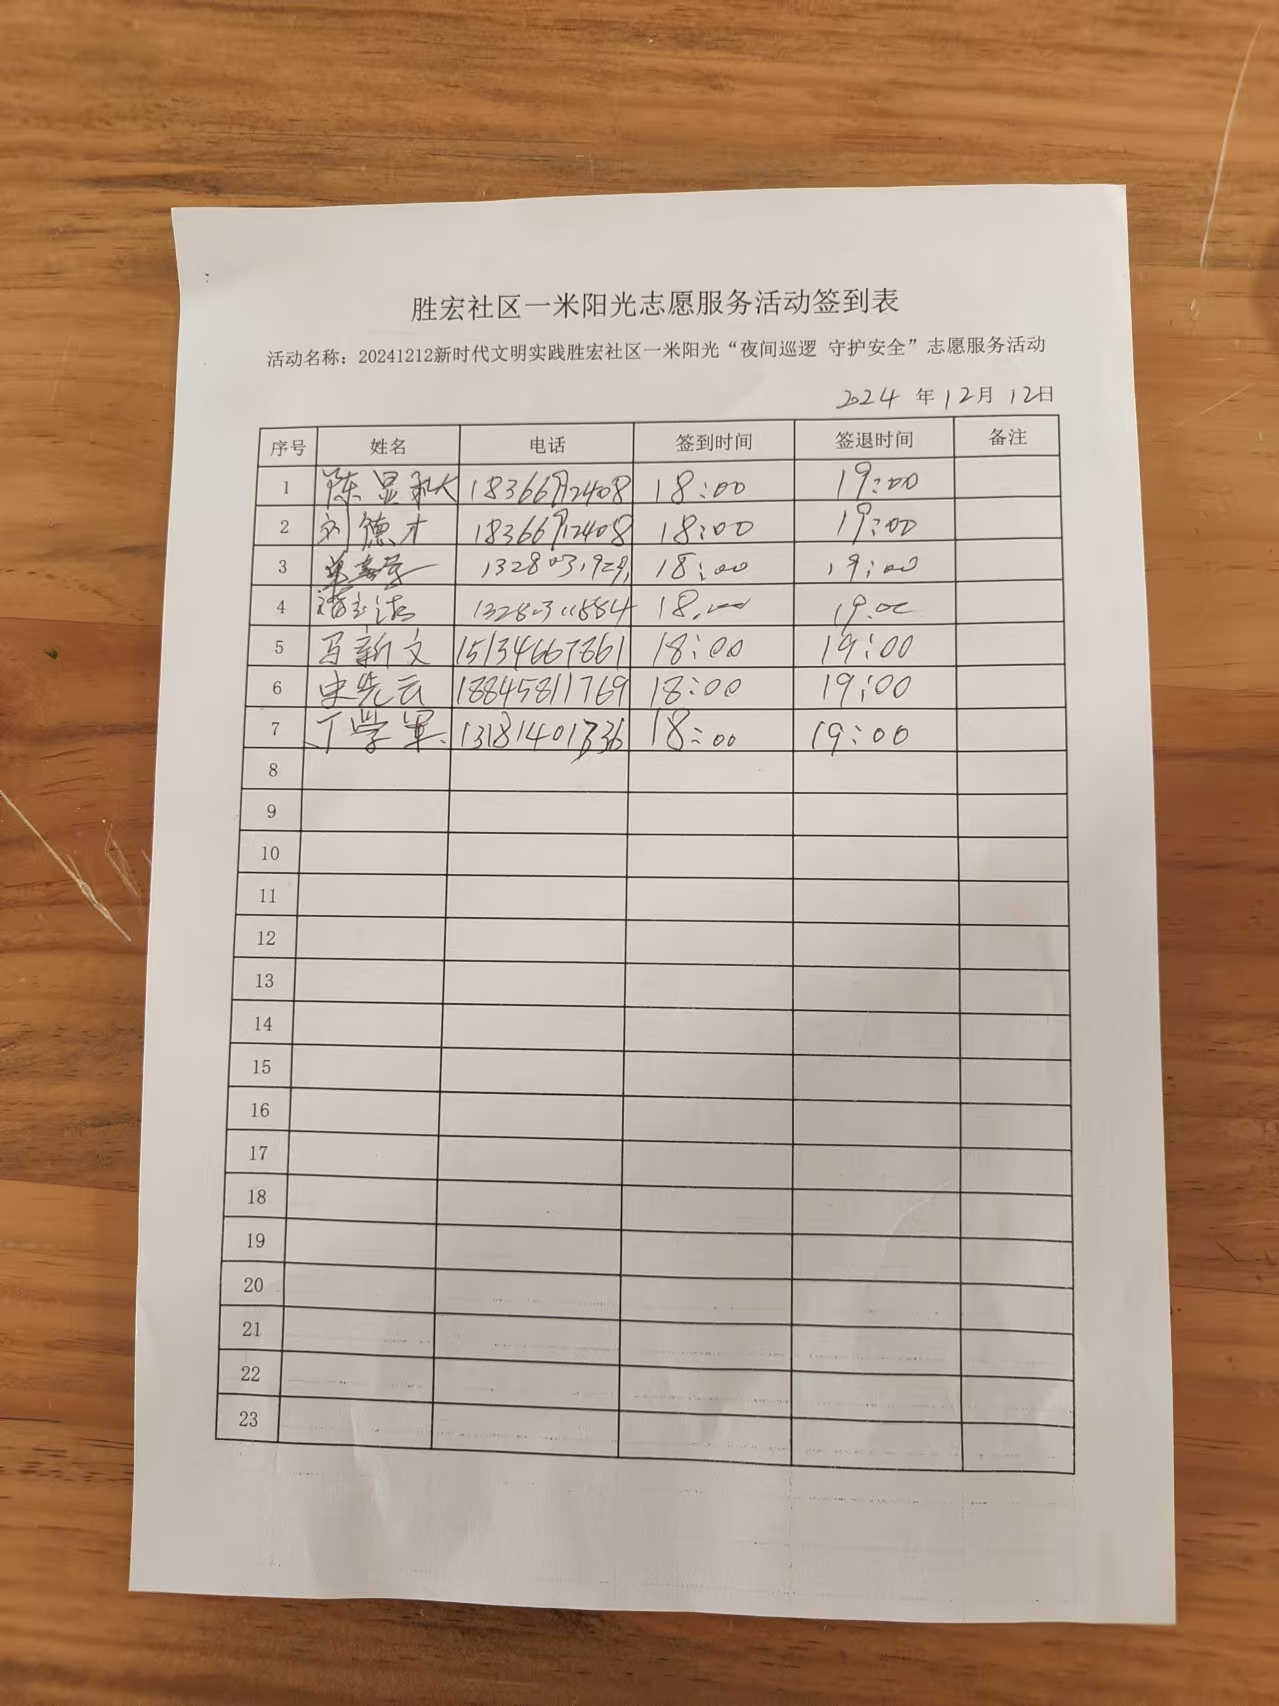 胜宏社区一米阳光志愿服务活动签到表
活动名称：20241212新时代文明实践胜宏社区一米阳光“夜间巡逻 守护安全”志愿服务活动
2024 年 12月 12日
序号 姓名 电话 签到时间 签退时间 备注
1 陈显 18:00 19:00
2 刘德才 18:00 19:00
3 18:00 19:00
4 18:00 19:00
5 马新文 15134667861 18:00 19:00
6 史先云 18845811769 18:00 19:00
7 丁学军 18:00 19:00
8
9
10
11
12
13
14
15
16
17
18
19
20
21
22
23